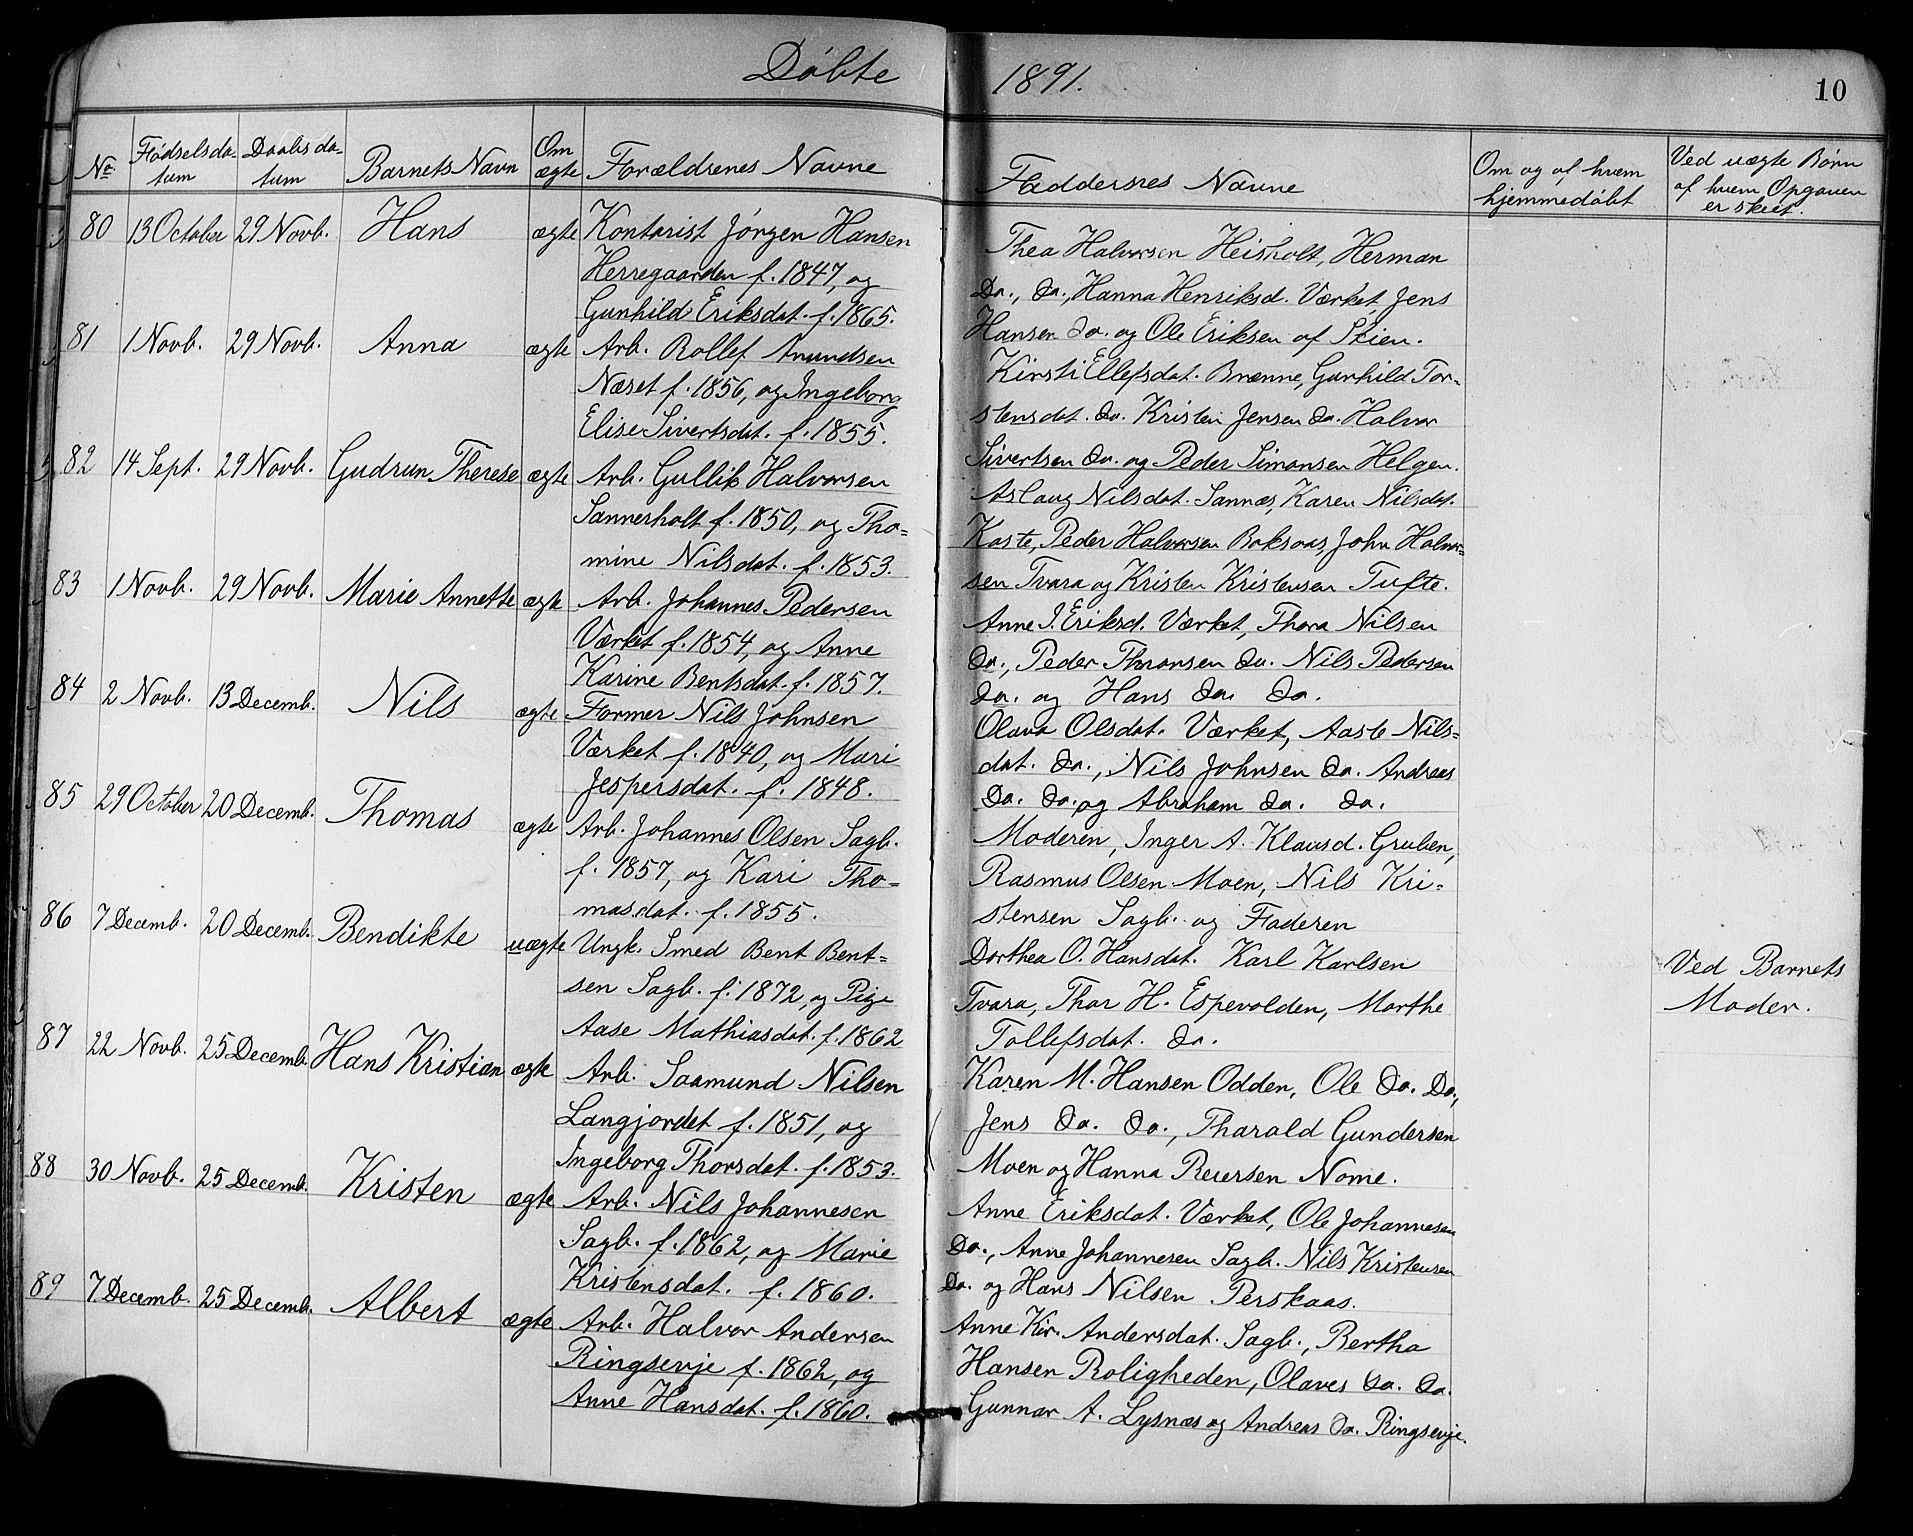 Døbte 1891. 10
No Fødselsda- Daabsda- Barnets Navn Om Forældrenes Navne
tum tum ægte
Faddernes Navne
Om og af hvem Ved uægte Børn
hjemmedøbt af hvem Opgaven
er skeet.
80 13 October 29 Novb. Hans ægte Kontorist Jørgen Hansen
Herregaarden f. 1847, og
Gunhild Eriksdat. f. 1865.
81 1 Novb. 29 Novb. Anna ægte Arb. Rollef Anundsen
Næset f. 1856, og Ingeborg
Elise Sivertsdat. f. 1855.
82 14 Sept. 29 Novb. Gudrun Therese ægte Arb. Gullik Halvorsen
Sannerholt f. 1850, og Tho-
mine Nilsdat. f. 1853.
83 1 Novb. 29 Novb. Marie Annette ægte Arb. Johannes Pedersen
Værket f. 1854, og Anne
Karine Bentsdat. f. 1857.
84 2 Novb. 13 Decemb. Nils ægte Former Nils Johnsen
Værket f. 1840, og Mari
Jespersdat. f. 1848.
85 29 October 20 Decemb. Thomas ægte Arb. Johannes Olsen Sagb.
f. 1857, og Kari Tho-
masdat. f. 1855.
86 7 Decemb. 20 Decemb. Bendikte uægte Ungk. Smed Bent Bent-
sen Sagb. f. 1872, og Pige
Aase Mathiasdat. f. 1862
87 22 Novb. 25 Decemb. Hans Kristian ægte Arb. Saamund Nilsen
Langjordet f. 1851, og
Ingeborg Thorsdat. f. 1853.
88 30 Novb. 25 Decemb. Kristen ægte Arb. Nils Johannesen
Sagb. f. 1862, og Marie
Kristensdat. f. 1860.
89 7 Decemb. 25 Decemb. Albert ægte Arb. Halvor Andersen
Ringsevje f. 1862, og
Anne Hansdat. f. 1860.
Thea Halvorsen Heisholt, Herman
Do., do., Hanna Henriksd. Værket, Jens
Hansen do. og Ole Eriksen af Skien.
Kirsti Ellefsdat. Brænne, Gunhild Tor-
stensdat. do. Kristen Jensen do. Halvor
Sivertsen do. og Peder Simonsen Helgen.
Aslaug Nilsdat. Sannæs, Karen Nilsdat.
Kaste, Peder Halvorsen Boksaas, John Halvor-
sen Tvara og Kristen Kristensen Tufte.
Anne J. Eriksd. Værket, Thora Nilsen
do., Peder Thoransen do. Nils Pedersen
do. og Hans do. do.
Olava Olsdat. Værket, Aaste Nils-
dat. do., Nils Johnsen do. Andreas
Do. do. og Abraham do. do.
Moderen, Inger A. Klausd. Gruben,
Rasmus Olsen Moen, Nils Kri-
stensen Sagb. og Faderen
Dorthea O. Hansdat. Karl Karlsen
Tvara, Thor H. Espevolden, Marthe
Tollefsdat. do.
Karen M. Hansen Odden, Ole do. Do.,
Jens do. do., Tharald Gundersen
Moen og Hanna Reiersen Nome.
Anne Eriksdat. Værket, Ole Johannesen
Do., Anne Johannesen Sagb. Nils Kristensen
do. og Hans Nilsen Perskaas.
Anne Kir. Andersdat. Sagb., Bertha
Hansen Roligheden, Olaves do. do.
Gunnar A. Lysnæs og Andreas do. Ringsevje.
Ved Barnets
Moder.